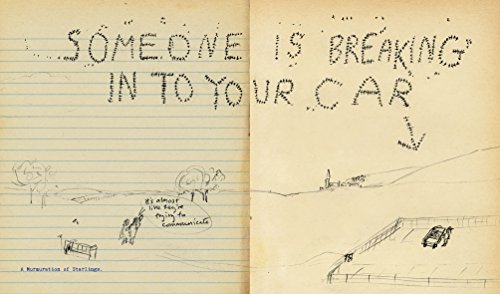 SOMEONE IS BREAKING
IN TO YOUR CAR
It's almost
like they're
trying to
communicate
A Murmuration of Starlings.